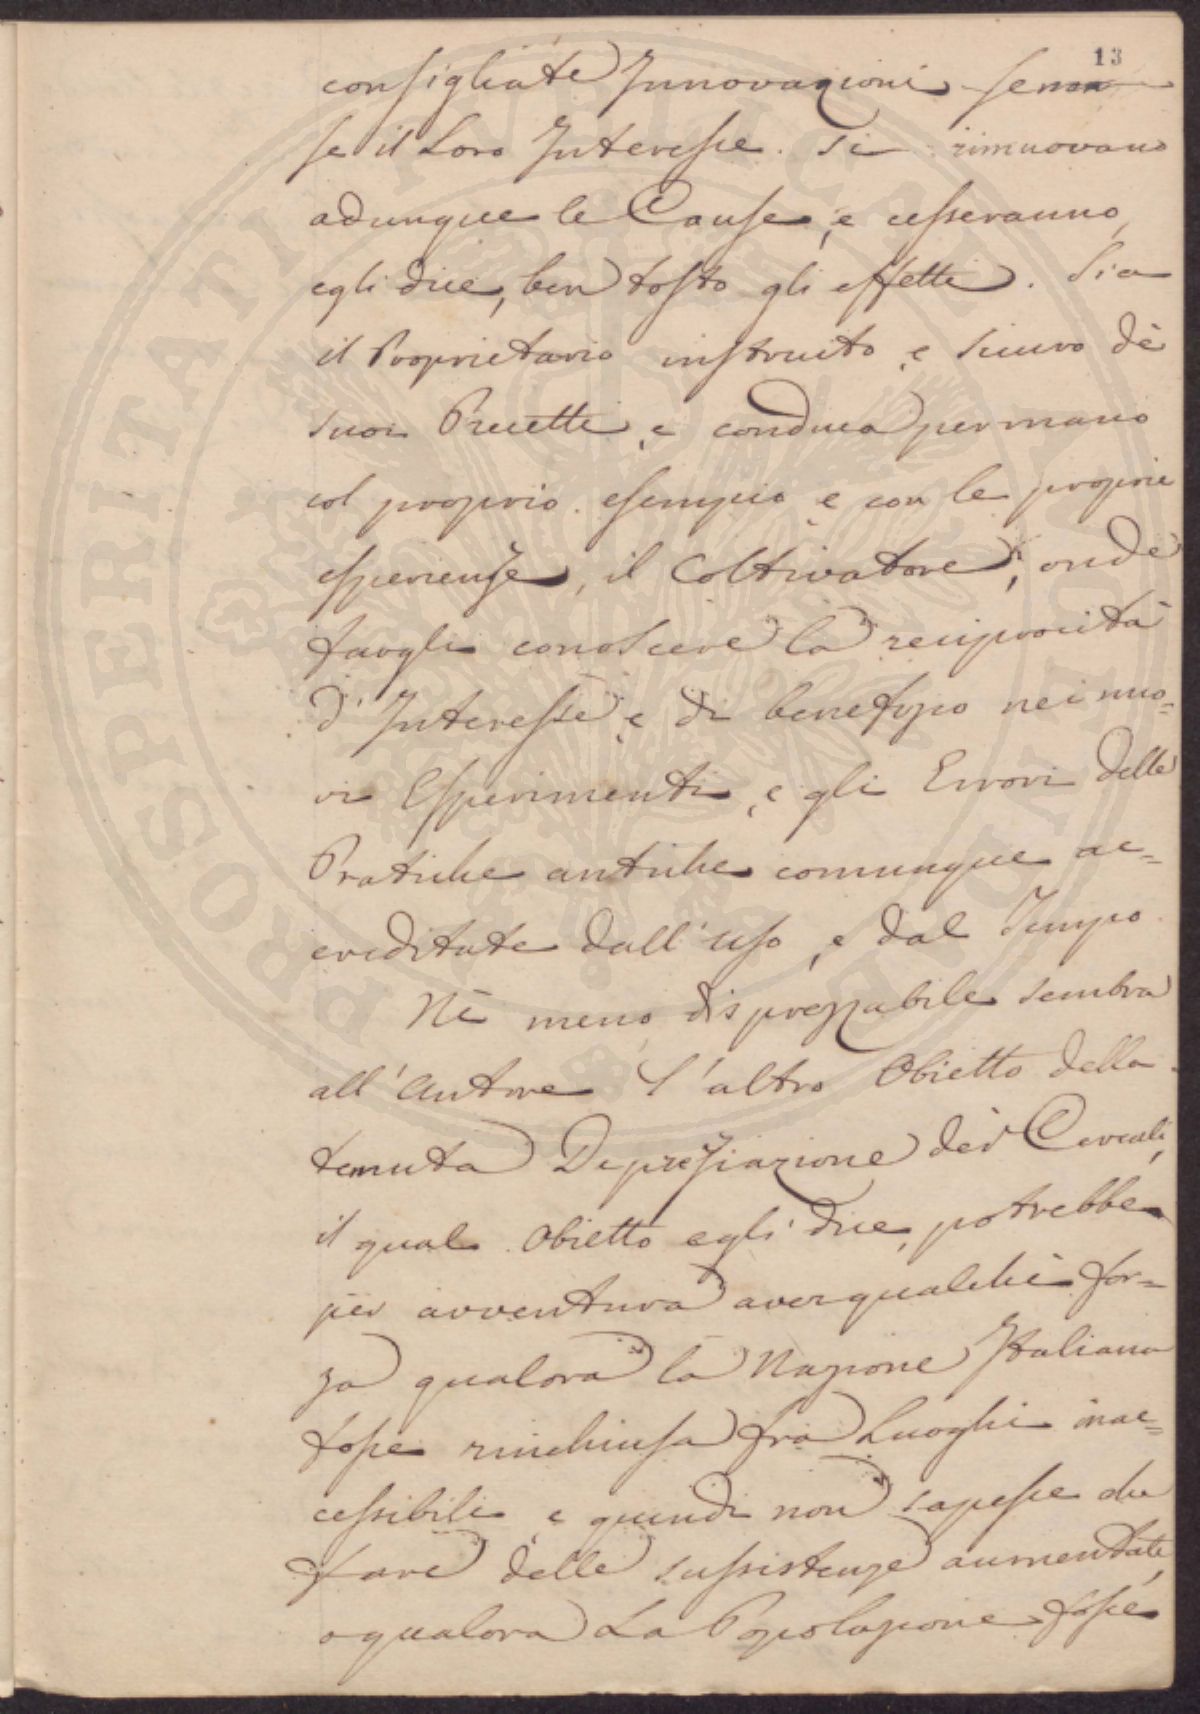 13
consigliate Innovazioni se non
se il Loro Interesse. Si rimuovano
adunque le Cause, e cesseranno,
egli dice, ben tosto gli effetti. Sia
il Proprietario instruito, e sicuro dè
suoi Precetti, e conduca per mano
col proprio esempio, e con le proprie
esperienze, il Coltivatore, onde
fargli conoscere la reciprocità
d'Interesse, e di benefizio nei nuo=
vi Esperimenti, e gli Errori delle
Pratiche antiche comunque ac=
creditate dall'uso, e dal Tempo.
Nè meno disprezzabile sembra
all'Autore l'altro Obietto della
temuta Depreziazione dei Cereali,
il qual Obietto egli dice, potrebbe
per avventura aver qualche for=
za qualora la Nazione Italiana
fosse rinchiusa fra Luoghi inac=
cessibili, e quindi non sapesse che
fare delle sussistenze aumentate,
o qualora La Popolazione fosse
PROSPERITATI PUBLICAE AUGENDAE